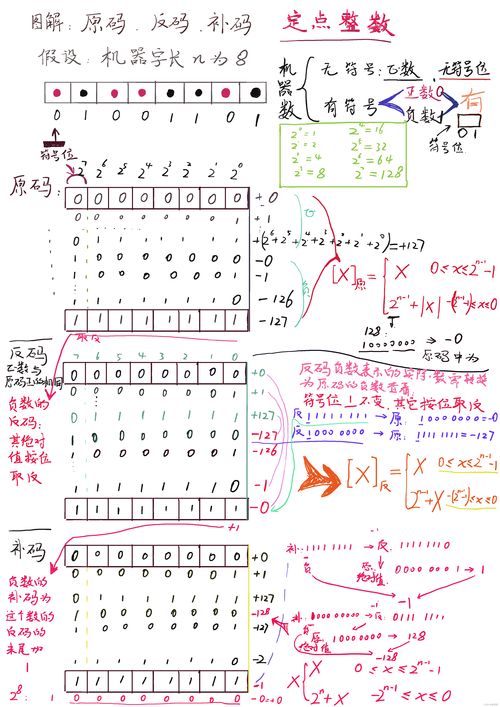 图解：原码、反码、补码
定点整数
假设：机器字长n为8
机器数
无符号：正数，无符号位
有符号
正数0
负数1
有
01
符号位
0 1 0 0 1 1 0 1
符号位
2⁰=1 2⁴=16
2¹=2 2⁵=32
2²=4 2⁶=64
2³=8 2⁷=128
原码：
2⁷ 2⁶ 2⁵ 2⁴ 2³ 2² 2¹ 2⁰
0 0 0 0 0 0 0 0 +0
0 0 0 0 0 0 0 1 +1
0 1 1 1 1 1 1 1 +(2⁶+2⁵+2⁴+2³+2²+2¹+2⁰)=+127
1 0 0 0 0 0 0 0 -0
1 0 0 0 0 0 0 1 -1
1 1 1 1 1 1 1 0 -126
1 1 1 1 1 1 1 1 -127
[X]原=
X 0≤x≤2ⁿ⁻¹
2ⁿ⁻¹+|X|
128:
10000000 → -0
原码中为
取反
反码
正数与
原码正数相同
负数的
反码：
其绝对
值按位
取反
7 6 5 4 3 2 1 0
0 0 0 0 0 0 0 0 +0
0 0 0 0 0 0 0 1 +1
0 1 1 1 1 1 1 1 +127
1 0 0 0 0 0 0 0 -127
1 0 0 0 0 0 0 1 -126
1 1 1 1 1 1 1 0 -1
1 1 1 1 1 1 1 1 -0
反码负数表示的实际数需转换
为原码的负数查看，
符号位1不变，其它按位取反
反11111111 → 原：10000000=-0
反10000000 → 原：11111111=-127
[X]反=
X 0≤x≤2ⁿ⁻¹-1
2ⁿ-1+X -(2ⁿ⁻¹-1)≤x≤0
+1
补码
负数的
补码为
这个数的
反码的
末尾加
1
0 0 0 0 0 0 0 0 +0
0 0 0 0 0 0 0 1 +1
0 1 1 1 1 1 1 1 +127
1 0 0 0 0 0 0 0 -128
1 0 0 0 0 0 0 1 -127
1 1 1 1 1 1 1 0 -2
1 1 1 1 1 1 1 1 -1
2⁸: 1 0 0 0 0 0 0 0 0 -0=+0
补：11111111 → 反：11111110
负
绝对值
00000001 → 1
-1
补：10000000 → 反 01111111
负
绝对值
10000000 → 128
-128
X
X 0≤x≤2ⁿ⁻¹-1
2ⁿ+X -2ⁿ⁻¹≤x≤0